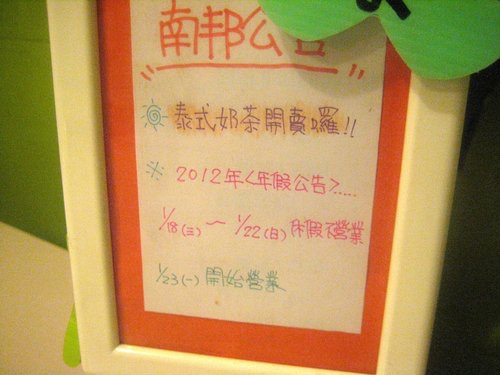 南邦公告
泰式奶茶開賣囉!!
※ 2012年<年假公告>.....
1/18(三) ～ 1/22(日) 休假不營業
1/23(一) 開始營業